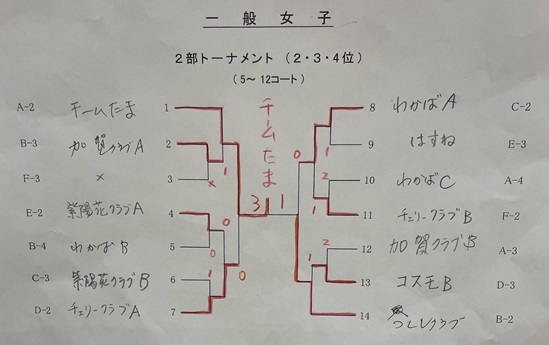 一般女子
2部トーナメント（2・3・4位）
（5～12コート）
チームたま
3 1
A-2 チームたま 1
B-3 加賀クラブA 2
F-3 × 3
E-2 紫陽花クラブA 4
B-4 わかばB 5
C-3 紫陽花クラブB 6
D-2 チェリークラブA 7
× 1
0 0
1 0
8 わかばA C-2
9 はすね E-3
10 わかばC A-4
11 チェリークラブB F-2
12 加賀クラブB A-3
13 コスモB D-3
14 クラブ B-2
0 1
2 1
2
1